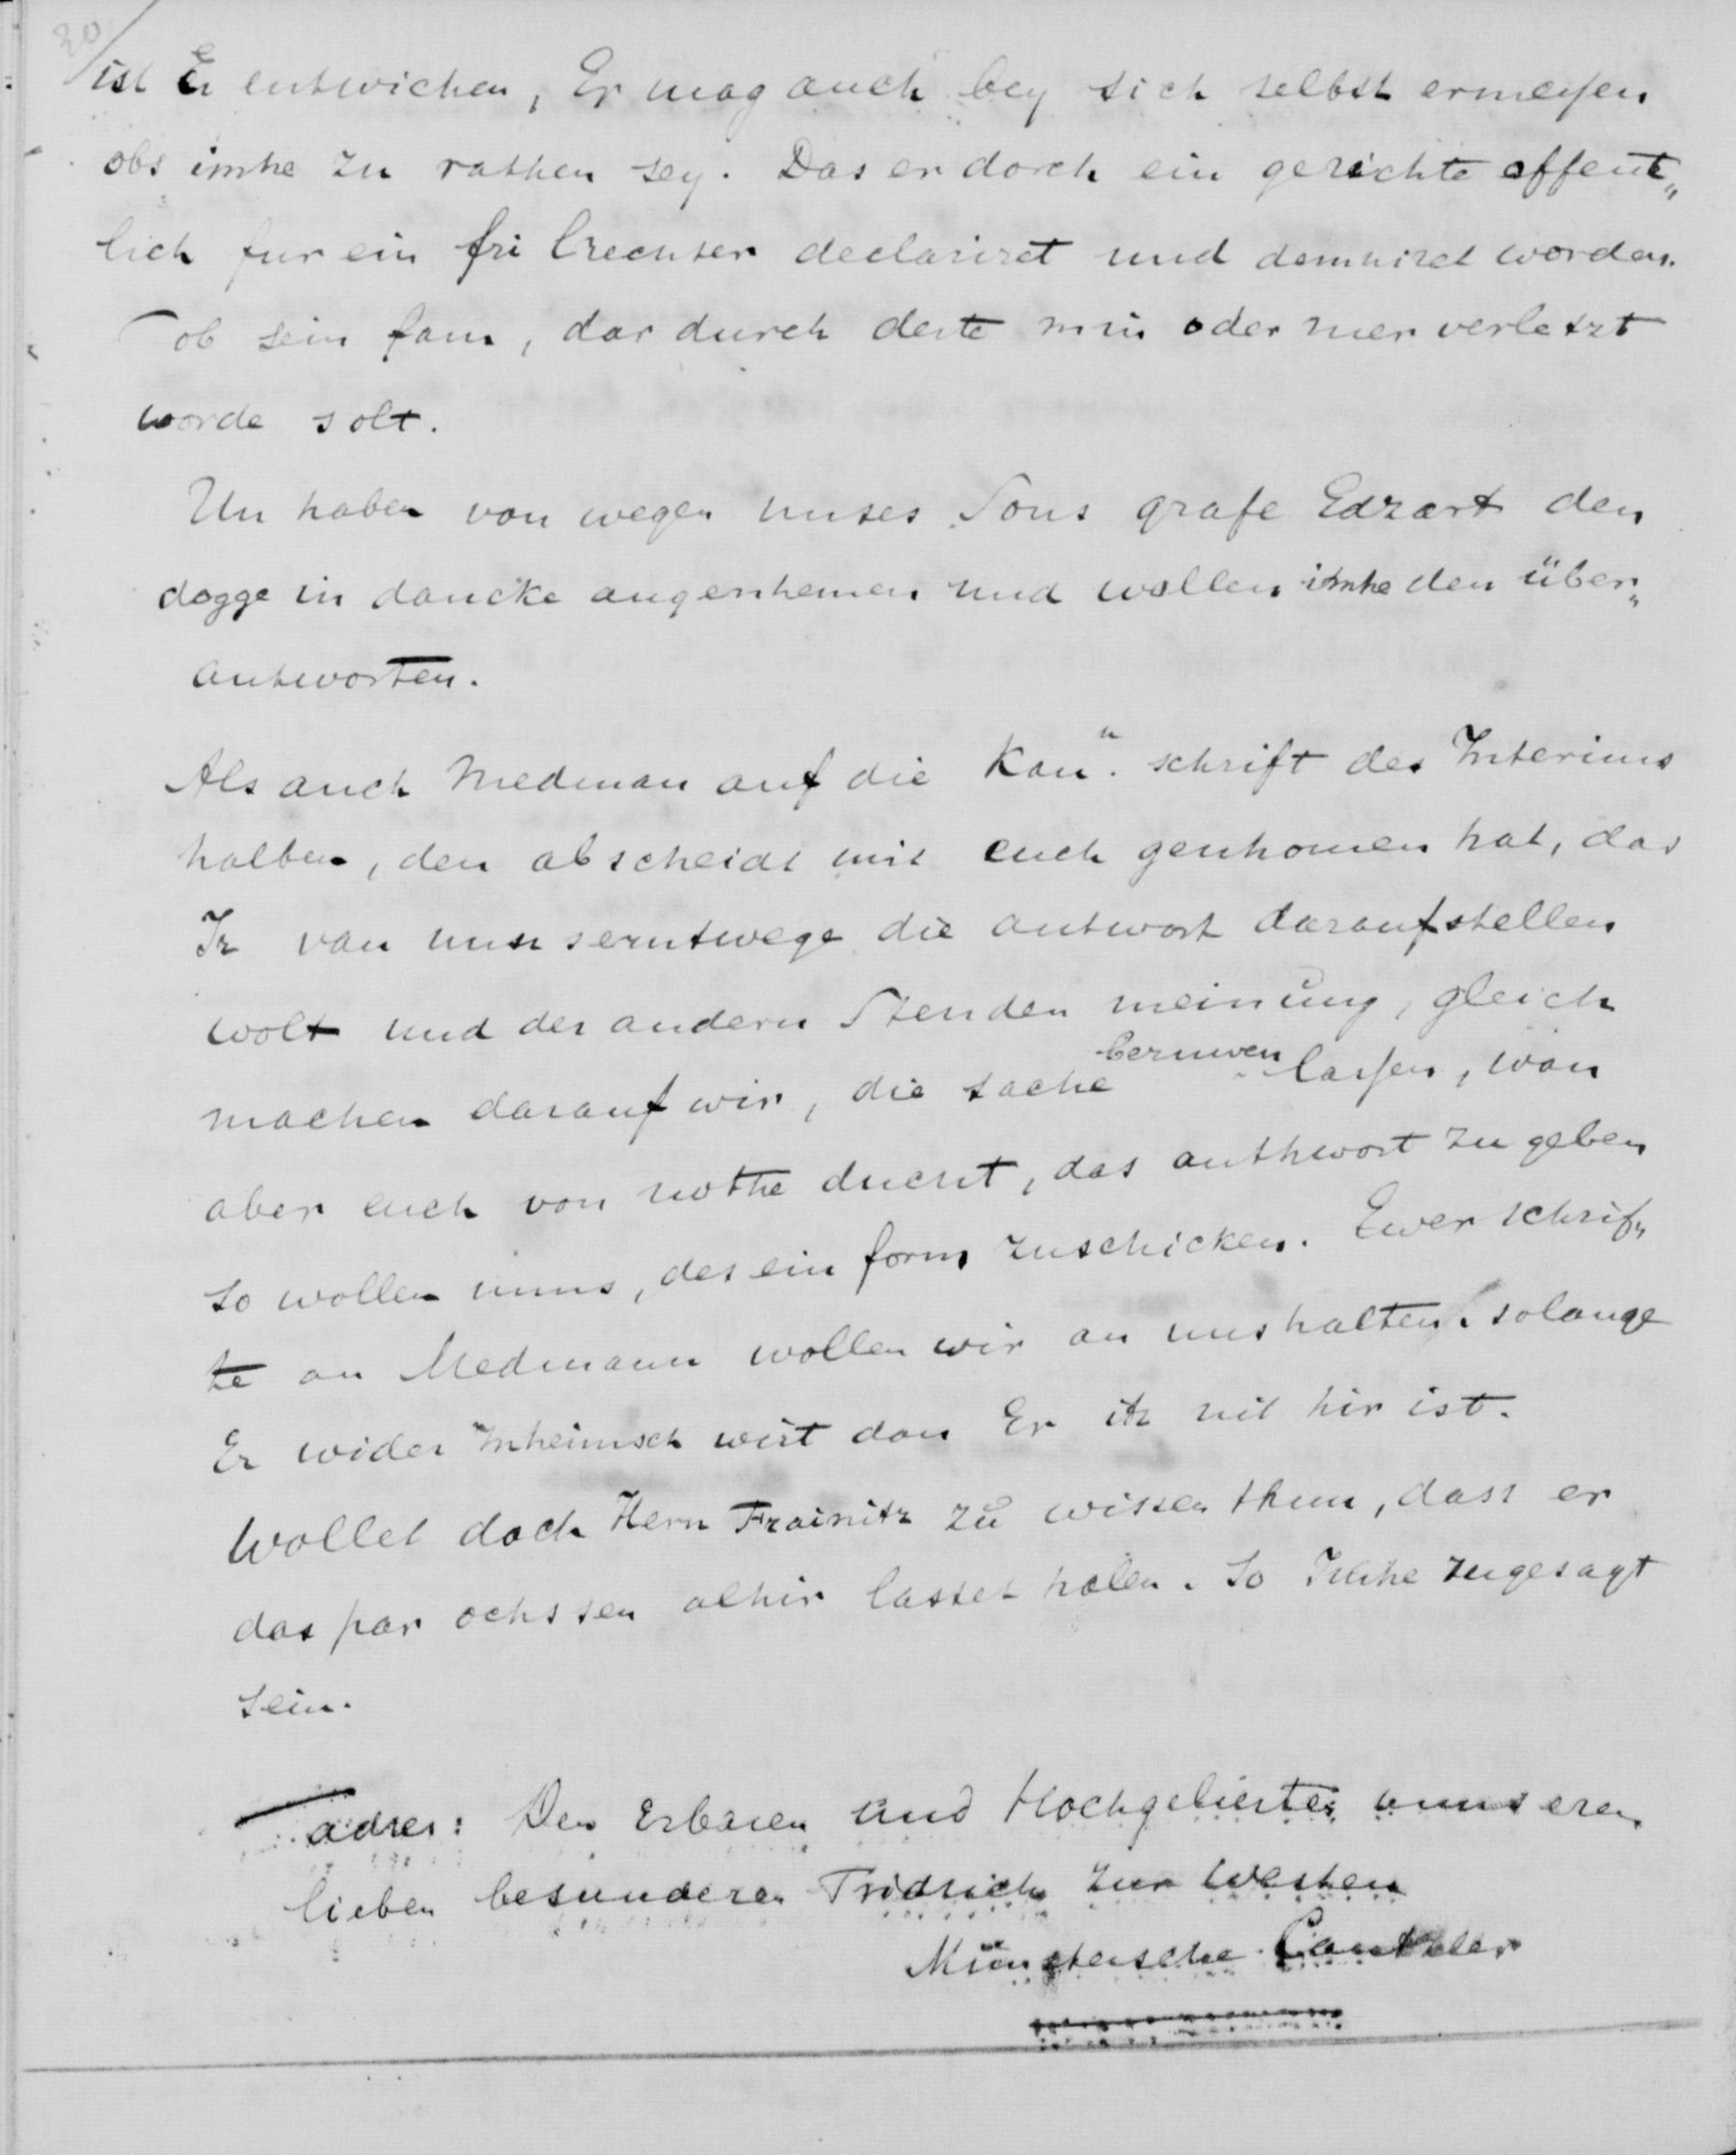 30
ist Er entwichen, Er mag auch bey sich selbst ermessen
obs imhe zu rathen sey. Das er dorch ein gerichte offent„
lich fur ein declariret und domniret worden.
ob sein fam, dar durch deste min oder mer verletzt
worde solt.
Un haben von wegen unses Sons grafe Edzart den
dogge in dancke angenhemen und wollen imhe den über„
antworten.
Als auch Medman auf die Kan". schrift des Interims
halben, den abscheidt mit euch genhomen hat, das
Ir van unsserntwege die antwort darauf stellen
wolt und der andern Stenden meinung, gleich
machen darauf wir, die sache beruwen lassen, wan
aber euch von nothe ducht, das anthwort zu geben
so wollen unns, des ein form zuschicken. Ewer schrif„
te an Medmann wollen wir an uns halten. solange
Er wider Inheimsch wirt dan Er itz nit hir ist.
Wollet doch Hern Frainitz zu wissen thun, dass er
das par ochssen alhir lasset holen. So Imhe zugesagt
sein.
adres: Den Erbaren und Hochgelierten unnseren
lieben besunderen Fridrich zur Westen
Münstersche Cantzler